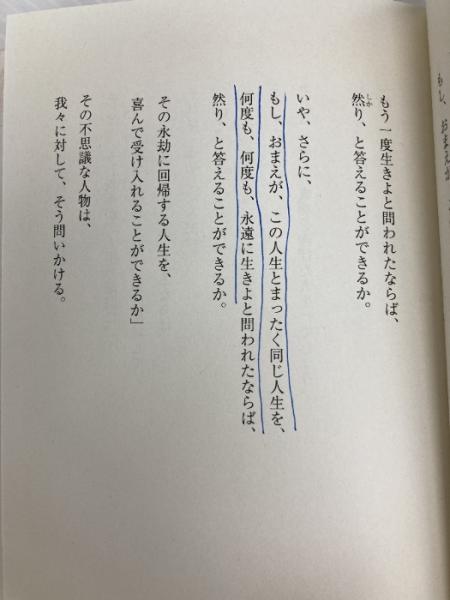 もし、おまえが、
もう一度生きよと問われたならば、
然り、と答えることができるか。
しか
いや、さらに、
もし、おまえが、この人生とまったく同じ人生を、
何度も、何度も、永遠に生きよと問われたならば、
然り、と答えることができるか。
その永劫に回帰する人生を、
喜んで受け入れることができるか」
その不思議な人物は、
我々に対して、そう問いかける。